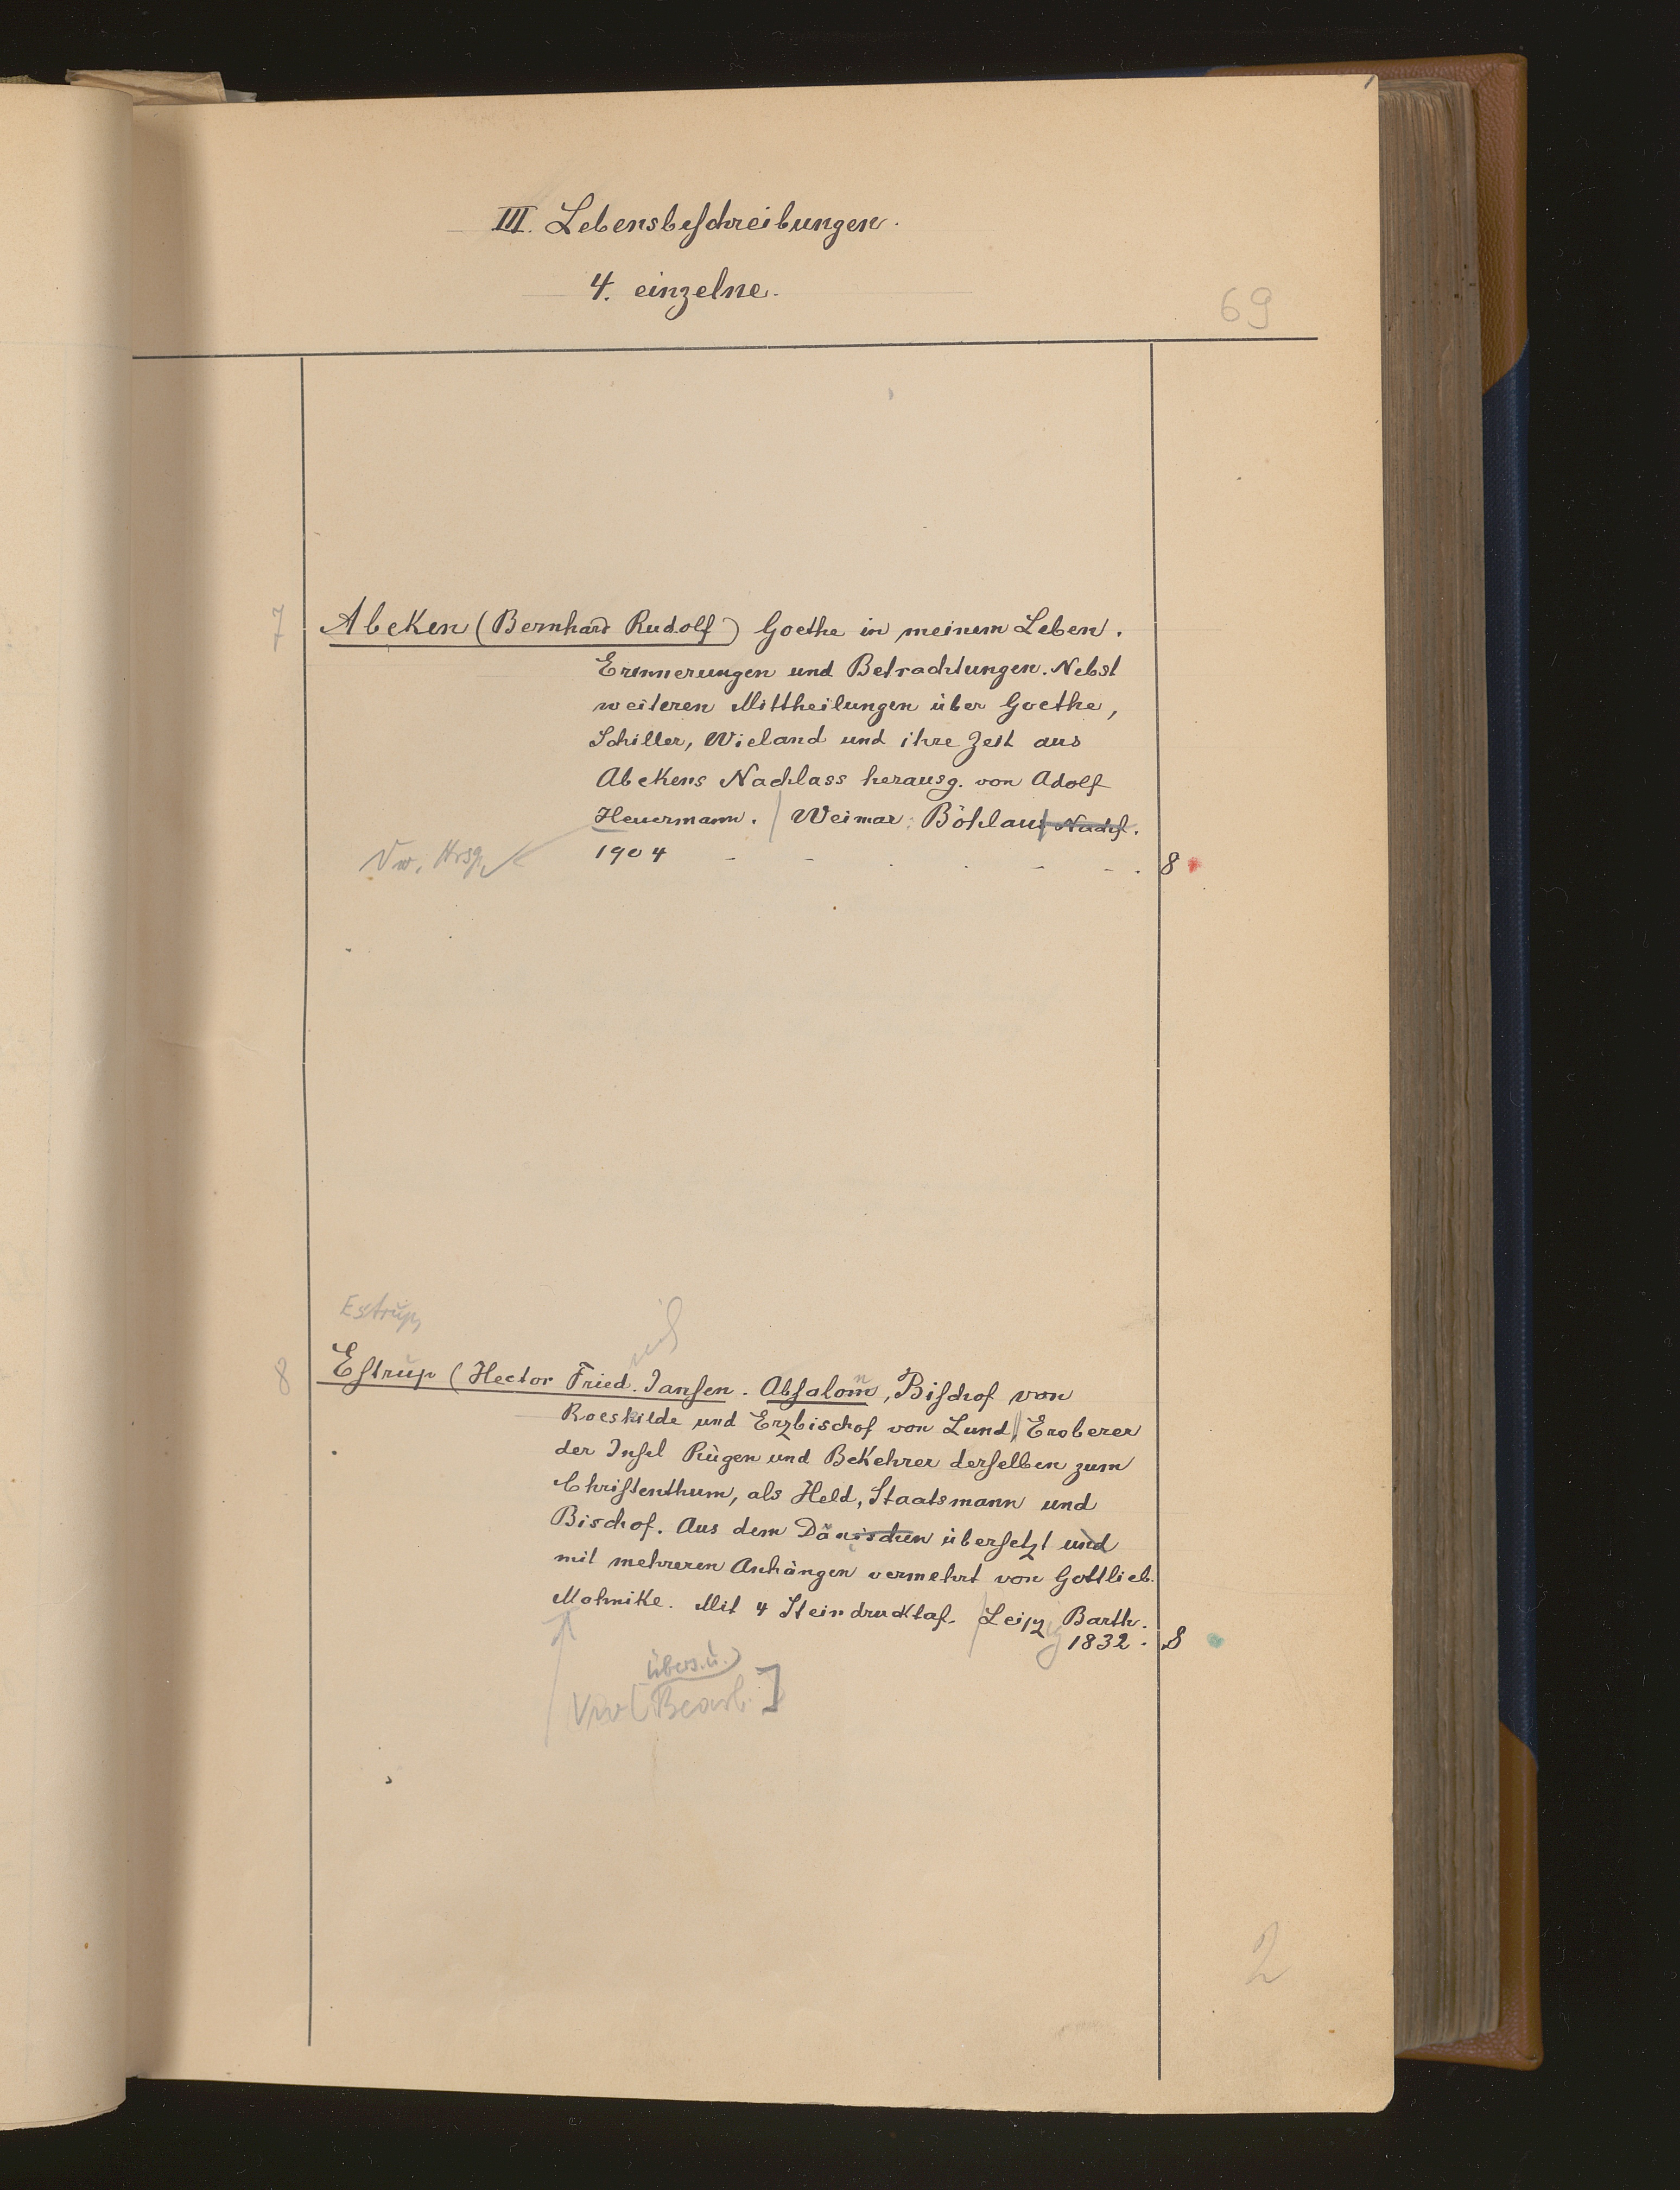 III. Lebensbeschreibungen.
4. einzelne.
69
7
Abeken (Bernhard Rudolf) Goethe in meinem Leben.
Erinnerungen und Betrachtungen. Nebst
weiteren Mittheilungen über Goethe,
Schiller, Wieland und ihre Zeit aus
Abekens Nachlass herausg. von Adolf
Heuermann. / Weimar: Böhlaus Nachf.
1904 - - . . - - . 8
Vw. Hrsg.
Estrup,
8
Estrup (Hector Fried. Jansen. Absalom, Bischof von
n
Roeskilde und Erzbischof von Lund, Eroberer
der Insel Rügen und Bekehrer derselben zum
Christenthum, als Held, Staatsmann und
Bischof. Aus dem Dänischen übersetzt und
mit mehreren Anhängen vermehrt von Gottlieb
Mohnike. Mit 4 Steindrucktaf. / Leipzig Barth.
1832. 8
übers. u.
Vw [Bearb.]
2